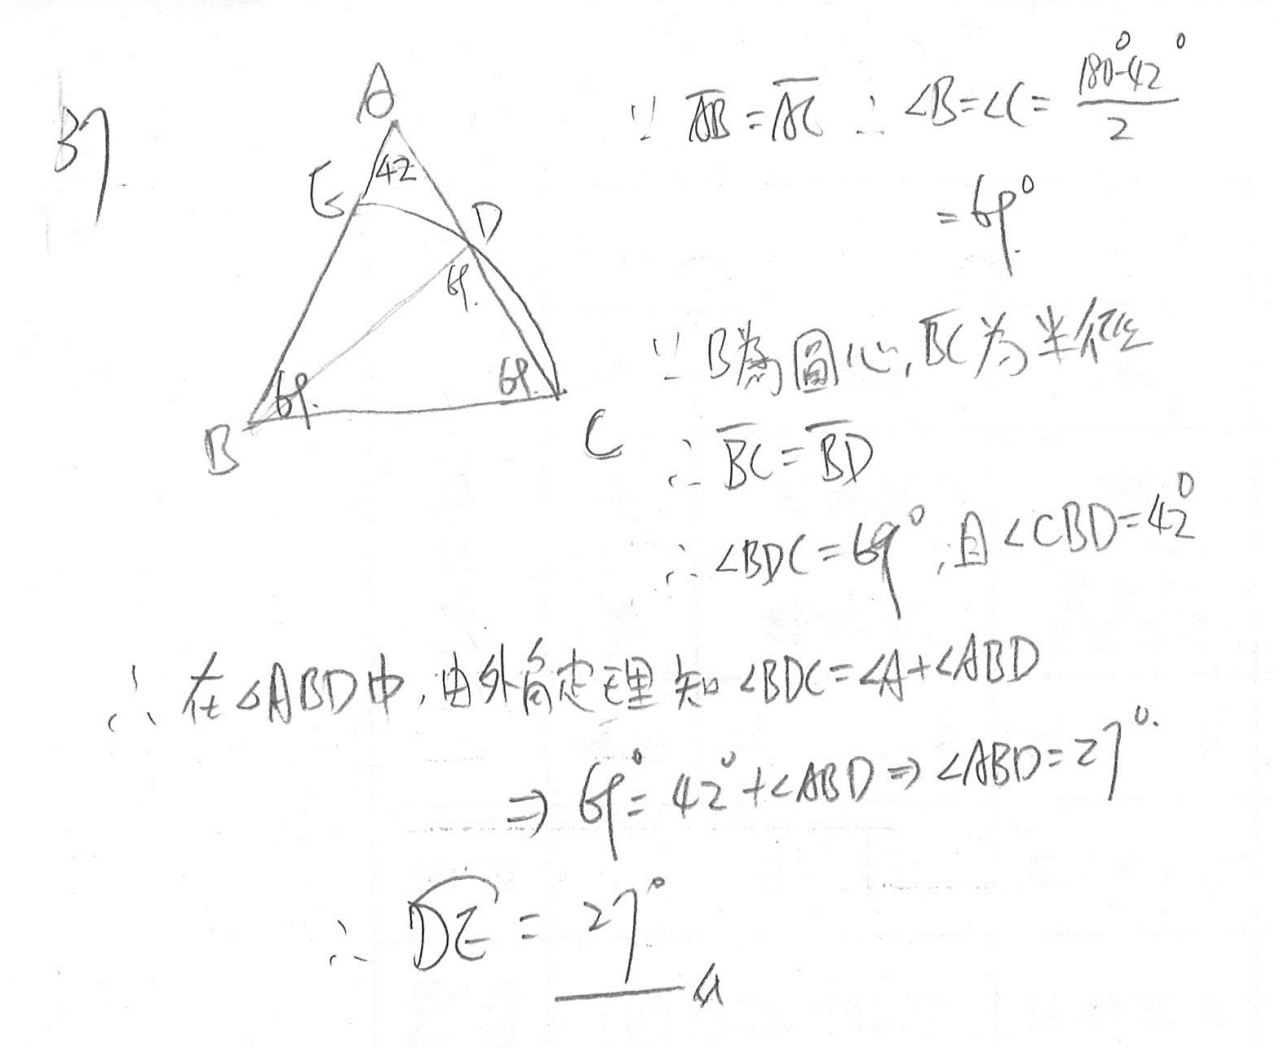 37.
A
42
E
D
69.
69.
69.
B
C
∵ AB = AC ∴ ∠B=∠C= (180°-42°)/2
= 69°
∵ B為圓心, BC为半徑
∴ BC = BD
∴ ∠BDC = 69°, 且∠CBD=42°
∴ 在△ABD中, 由外角定理知∠BDC=∠A+∠ABD
⇒ 69°= 42°+∠ABD ⇒ ∠ABD=27°.
∴ DE = 27°